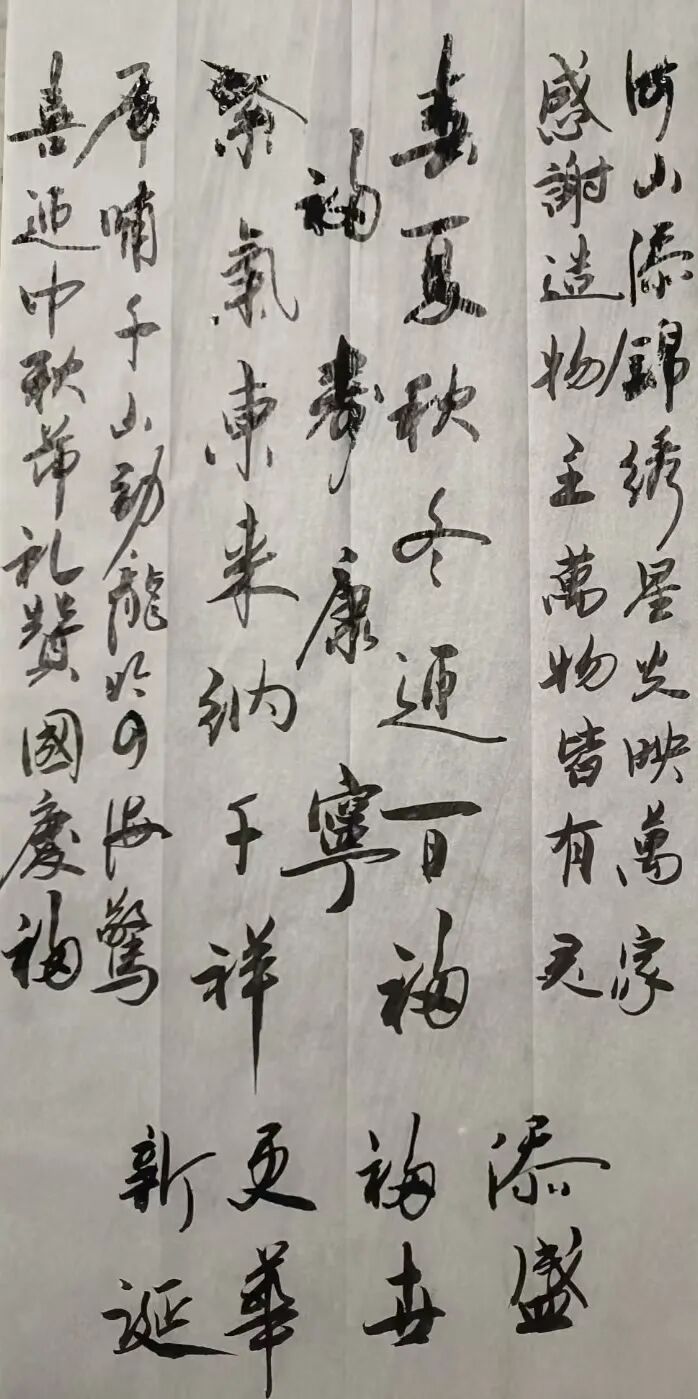 河山添錦绣星火映萬家
感謝造物主萬物皆有灵
春夏秋冬迎百福
福壽康寧
紫氣東来纳千祥
虎啸千山動龍吟四海驚
喜迎中秋節礼贊國慶福
添福更新
盛世華誕